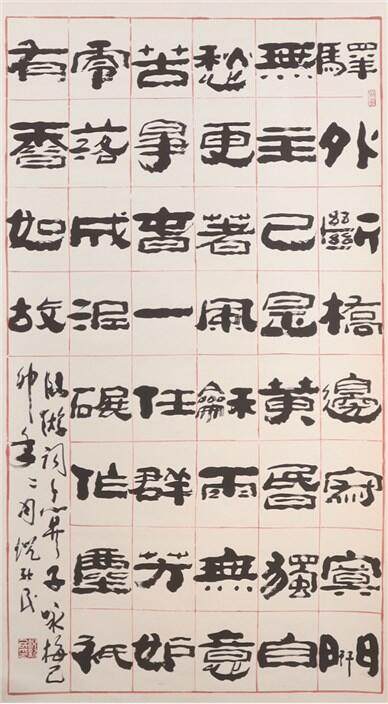 驛外斷橋邊寂寞開
無主已是黃昏獨自
愁更著風龢雨無意
苦爭春一任群芳妒
零落成泥碾作塵祇
有香如故
陸游詞卜算子咏梅己
卯年二月